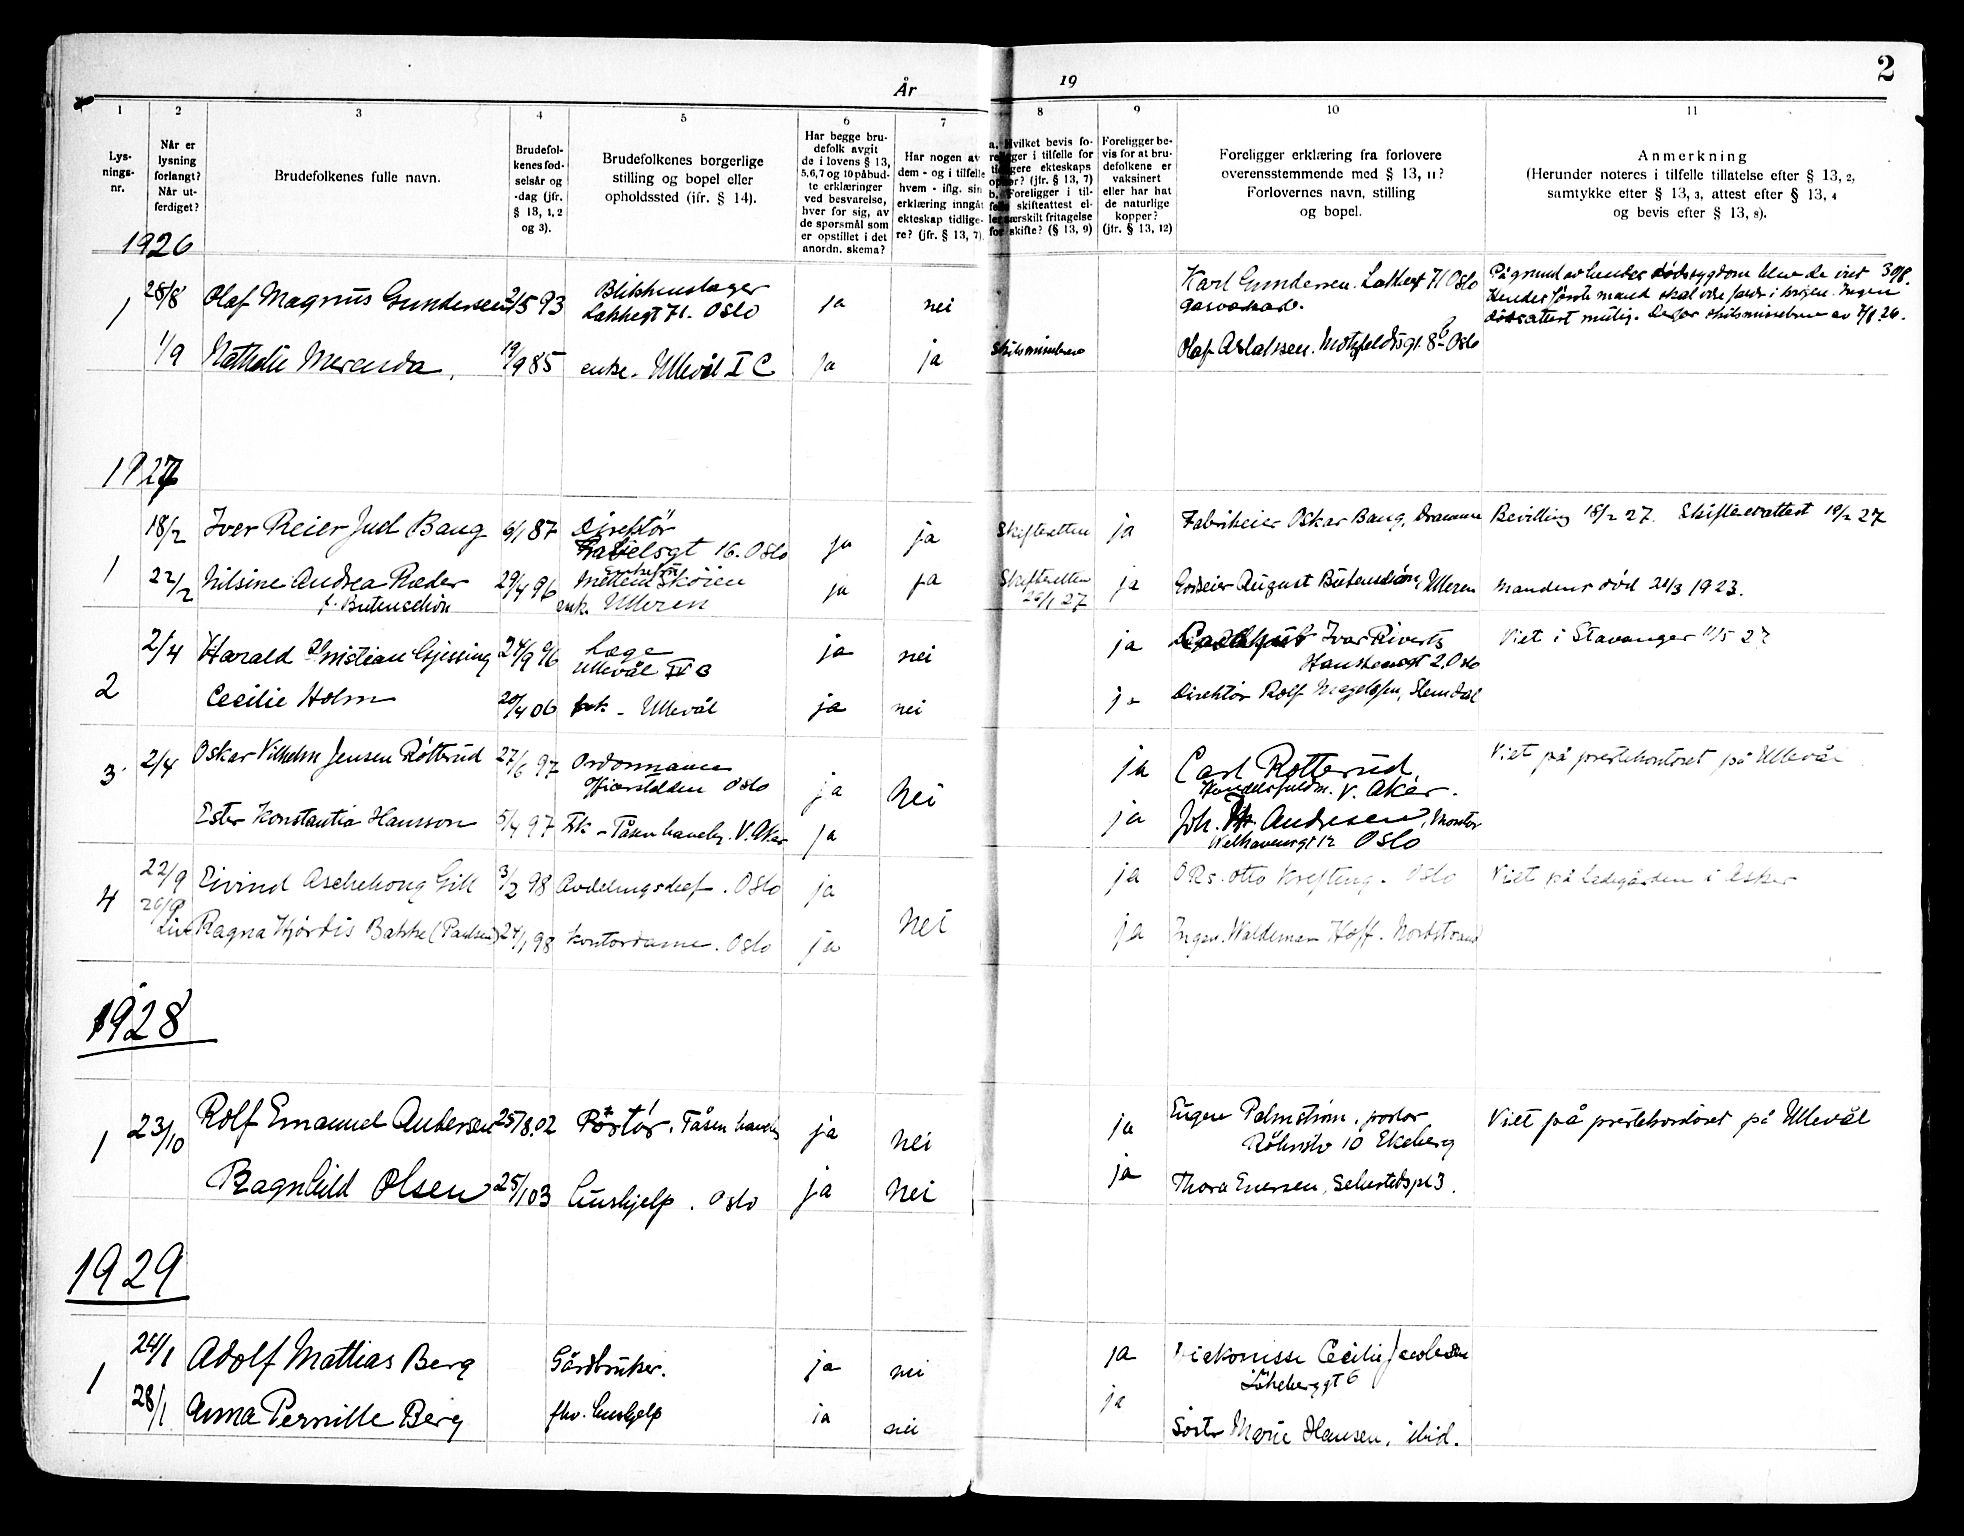 År 19
2
1 2 3 4 5 6 7 8 9 10 11
Lys-
nings-
nr.
Når er
lysning
forlangt?
Når ut-
ferdiget?
Brudefolkenes fulle navn.
Brudefol-
kenes fød-
selsår og
-dag (jfr.
§ 13, 1, 2
og 3).
Brudefolkenes borgerlige
stilling og bopel eller
opholdssted (jfr. § 14).
Har begge bru-
defolk avgit
de i lovens § 13,
5, 6, 7 og 10 påbud-
te erklæringer
ved besvarelse,
hver for sig, av
de spørsmål som
er opstillet i det
anordn. skema?
Har nogen av
dem - og i tilfelle
hvem - iflg. sin
erklæring inngåt
ekteskap tidlige-
re? (jfr. § 13, 7).
a. Hvilket bevis fo-
religger i tilfelle for
tidligere ekteskaps
ophør? (jfr. § 13, 7)
b. Foreligger i til-
felle skifteattest el-
ler særskilt fritagelse
for skifte? (§ 13, 9)
Foreligger be-
vis for at bru-
defolkene er
vaksinert
eller har hat
de naturlige
kopper?
(jfr. § 13, 12)
Foreligger erklæring fra forlovere
overensstemmende med § 13, 11?
Forlovernes navn, stilling
og bopel.
Anmerkning
(Herunder noteres i tilfelle tillatelse efter § 13, 2,
samtykke efter § 13, 3, attest efter § 13, 4
og bevis efter § 13, 8).
1926
1 28/8 Olaf Magnus Gundersen 2/5 93 Blikkenslager
Lakkegt 71. Oslo ja nei Karl Gundersen. Lakkegt 71 Oslo
På grund av hendes dødssygdom blev de viet 30/8.
Hendes første mand skal være falt i krigen. Ingen
dødsattest mulig. Derfor skilsmissebrev av 7/8 26.
1/9 Nathalie Meranda. 19/9 85 enke - Ullevål I C ja ja skilsmissebrev Olaf Aslaksen. Motzfeldtsgt. 8 b Oslo
1927
1 18/2 Iver Reier Juel Bang 6/1 87 Direktör
16. Oslo ja ja Skifteretten ja Fabrikeier Oskar Bang, Drammen Bevilling 18/2 27. Skifteattest 19/2 27
22/2 Nilsine Andrea Ræder
f. Butenschön 29/4 96 Mellem Skøien
enke Ulleren ja ja Skifteretten
26/1 27 ja Godseier August Butenschön, Ulleren Mandens död 21/3 1923.
2 2/4 Harald Christian Gjessing 24/9 96 Læge
Ullevål IV C ja nei ja Ivar Rivertz
2. Oslo Viet i Stavanger 11/5 27
Cecilie Holm 20/4 06 frk - Ullevål ja nei ja Direktör Rolf Magelssen, Slemdal
3 2/4 Oskar Vilhelm Jensen Rötterud 27/6 97 Ordonnance
Oslo ja nei ja Carl Rotterud,
V. Aker. Viet på prestekontoret på Ullevål
Ester Konstantia Hansson 5/4 97 Frk - Tåsen haveby. V. Aker ja ja Joh. Andresen, Montör
Welhavensgt 12 Oslo
4 22/9 Eivind Aschehoug Gill 3/2 98 Avdelingschef. Oslo ja nei ja O.Rs. Otto Krefting - Oslo Viet på Ladegården i Asker
26/9 Liv Ragna Hjördis Bakke (Paulsen) 24/1 98 kontordame. Oslo ja ja Ingen. Waldemar Hoff. Nordstrand
1928
1 23/10 Rolf Emanuel Andersen 25/8.02 Portör. Tåsen haveby ja nei ja Eugen Palmström, portör
10 Ekeberg Viet på prestekontoret på Ullevål
Ragnhild Olsen 25/1 03 hushjelp. Oslo ja nei ja Thora Enersen, Sehestedspl 3.
1929
1 24/1 Adolf Mattias Berg Gårdbruker. ja nei ja Diakonisse Cecilie Jacobsen
6
28/1 Anna Pernille Berg fhv. hushjelp ja nei ja Söster Marie Hansen, ibid.